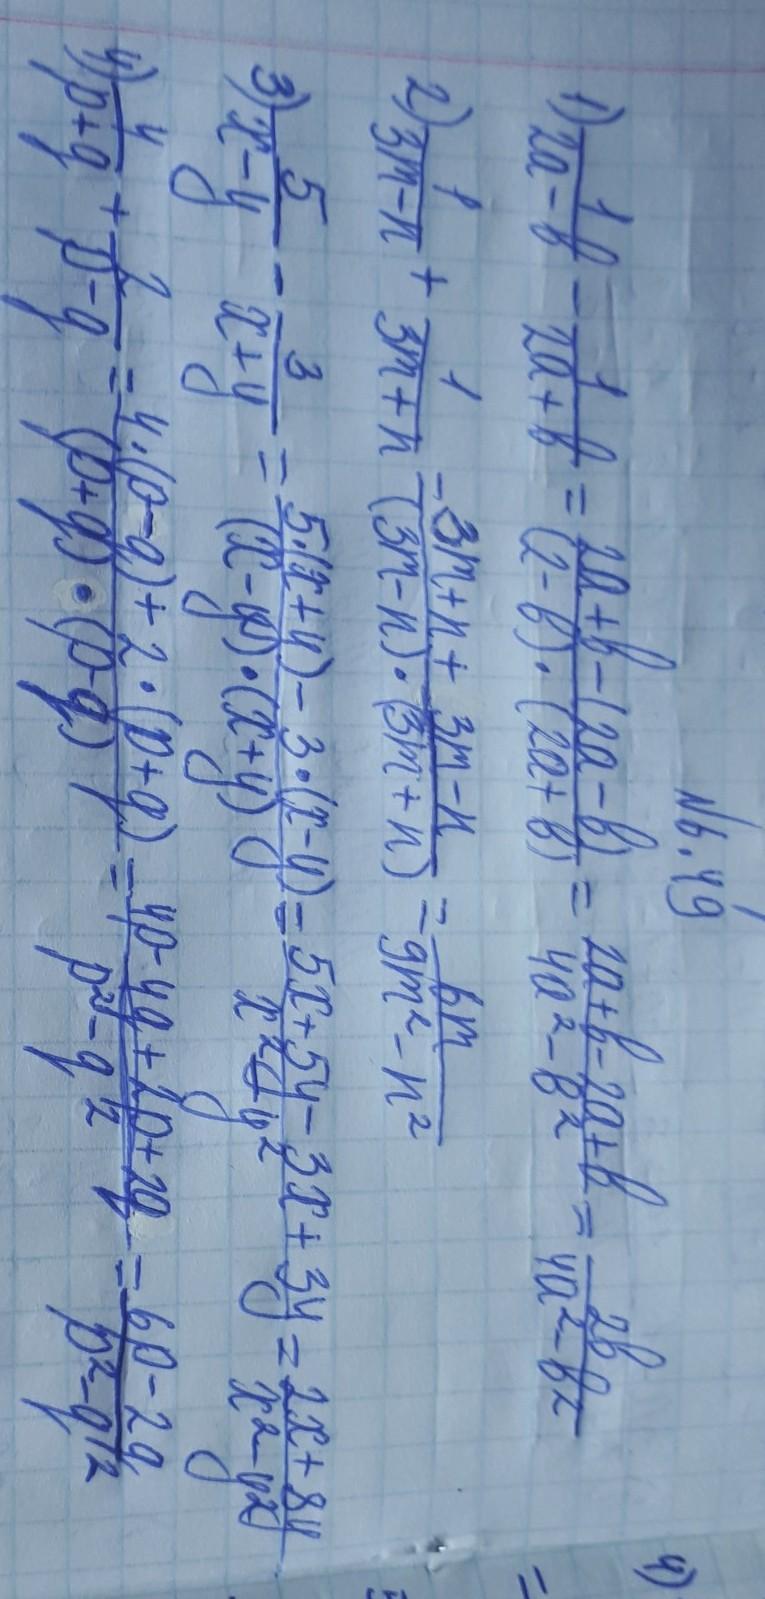 №6.49
1) 1/(2a-b) - 1/(2a+b) = (2a+b-(2a-b))/((2-b)·(2a+b)) = (2a+b-2a+b)/(4a²-b²) = 2b/(4a²-b²)
2) 1/(3m-n) + 1/(3m+n) = (3m+n+3m-n)/((3m-n)·(3m+n)) = 6m/(9m²-n²)
3) 5/(x-y) - 3/(x+y) = (5·(x+y)-3·(x-y))/((x-y)·(x+y)) = (5x+5y-3x+3y)/(x²-y²) = (2x+8y)/(x²-y²)
4) 4/(p+q) + 2/(p-q) = (4·(p-q)+2·(p+q))/((p+q)·(p-q)) = (4p-4q+2p+2q)/(p²-q²) = (6p-2q)/(p²-q²)
4)
=